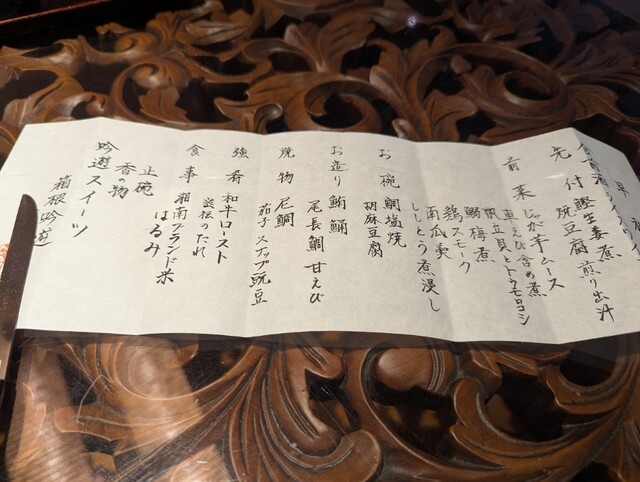 先付 鰹生姜煮
玩豆腐 煎り出汁
前菜 じゃが芋ムース
車えび含め煮
帆立貝とトウモロコシ
鰯梅煮
鶏スモーク
南瓜羹
ししとう煮浸し
お椀 鯛塩焼
胡麻豆腐
お造り 鮪 鰆
尾長鯛 甘えび
焼物 尼鯛
茄子 スナップ豌豆
強肴 和牛ロースト
淡桜のたれ
食事 湘南ブランド米
はるみ
止碗
香の物
吟遊スイーツ
箱根吟遊